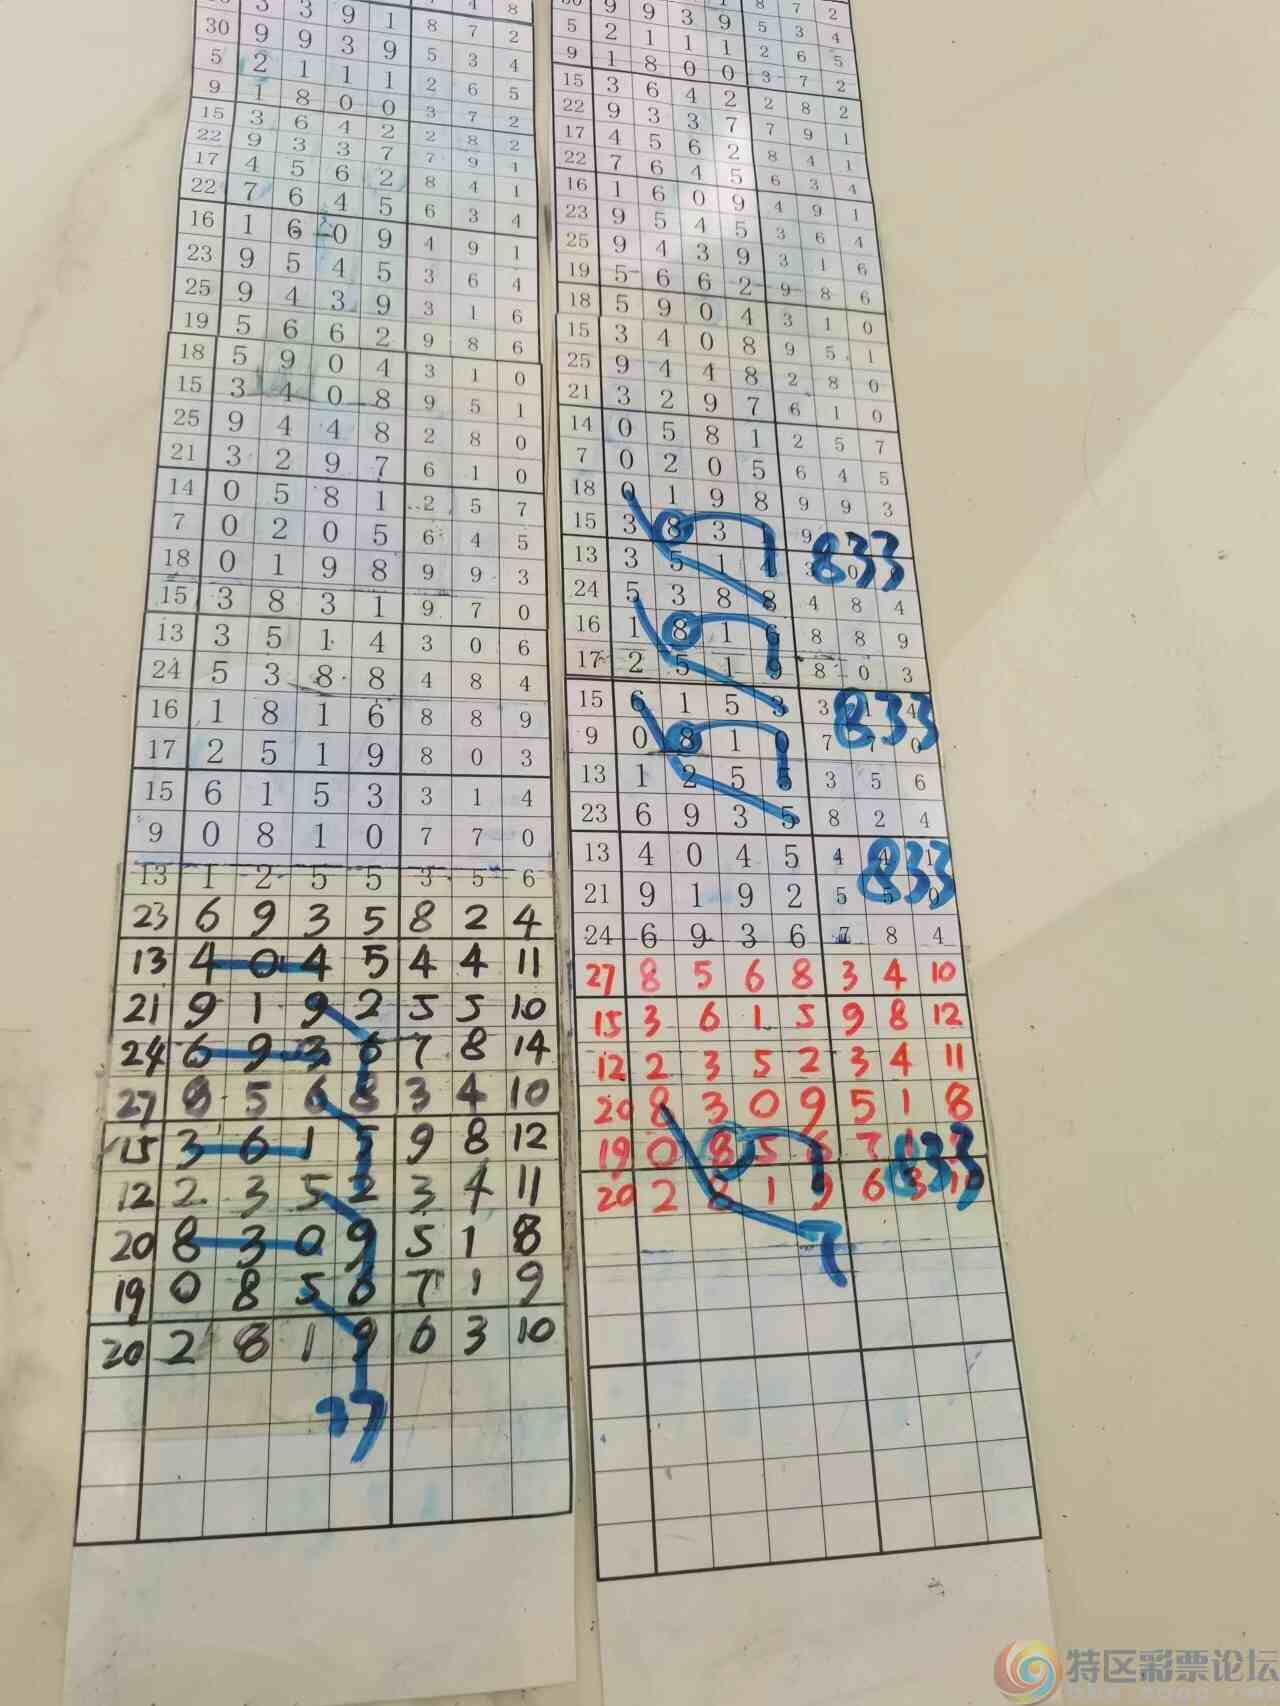 3 3 9 1 4 8
30 9 9 3 9 8 7 2
5 2 1 1 1 5 3 4
9 1 8 0 0 2 6 5
15 3 6 4 2 3 7 2
22 9 3 3 7 2 8 2
17 4 5 6 2 7 9 1
22 7 6 4 5 8 4 1
16 1 6 0 9 6 3 4
23 9 5 4 5 4 9 1
25 9 4 3 9 3 6 4
19 5 6 6 2 3 1 6
18 5 9 0 4 9 8 6
15 3 4 0 8 3 1 0
25 9 4 4 8 9 5 1
21 3 2 9 7 2 8 0
14 0 5 8 1 6 1 0
7 0 2 0 5 2 5 7
18 0 1 9 8 6 4 5
15 3 8 3 1 9 9 3
13 3 5 1 4 9 7 0
24 5 3 8 8 3 0 6
16 1 8 1 6 4 8 4
17 2 5 1 9 8 8 9
15 6 1 5 3 8 0 3
9 0 8 1 0 3 1 4
13 1 2 5 5 7 7 0
23 6 9 3 5 3 5 6
13 4 0 4 5 8 2 4
21 9 1 9 2 4 4 11
24 6 9 3 6 5 5 10
27 8 5 6 8 7 8 14
15 3 6 1 5 3 4 10
12 2 3 5 2 9 8 12
20 8 3 0 9 3 4 11
19 0 8 5 6 5 1 8
20 2 8 1 9 7 1 9
6 3 10
37
30 9 9 3 9 8 7 2
5 2 1 1 1 5 3 4
9 1 8 0 0 2 6 5
15 3 6 4 2 3 7 2
22 9 3 3 7 2 8 2
17 4 5 6 2 7 9 1
22 7 6 4 5 8 4 1
16 1 6 0 9 6 3 4
23 9 5 4 5 4 9 1
25 9 4 3 9 3 6 4
19 5 6 6 2 3 1 6
18 5 9 0 4 9 8 6
15 3 4 0 8 3 1 0
25 9 4 4 8 9 5 1
21 3 2 9 7 2 8 0
14 0 5 8 1 6 1 0
7 0 2 0 5 2 5 7
18 0 1 9 8 6 4 5
15 3 8 3 1 9 9 3
13 3 5 1 4 9
833
24 5 3 8 8 3 0
16 1 8 1 6 4 8 4
17 2 5 1 9 8 8 9
15 6 1 5 3 8 0 3
9 0 8 1 0 3 1 4
833
13 1 2 5 5 7 7 0
23 6 9 3 5 3 5 6
13 4 0 4 5 8 2 4
21 9 1 9 2 4 4 1
833
24 6 9 3 6 5 5 0
27 8 5 6 8 7 8 4
15 3 6 1 5 3 4 10
12 2 3 5 2 9 8 12
20 8 3 0 9 3 4 11
19 0 8 5 6 5 1 8
20 2 8 1 9 7 1
833
6 3 10
7
特区彩票论坛